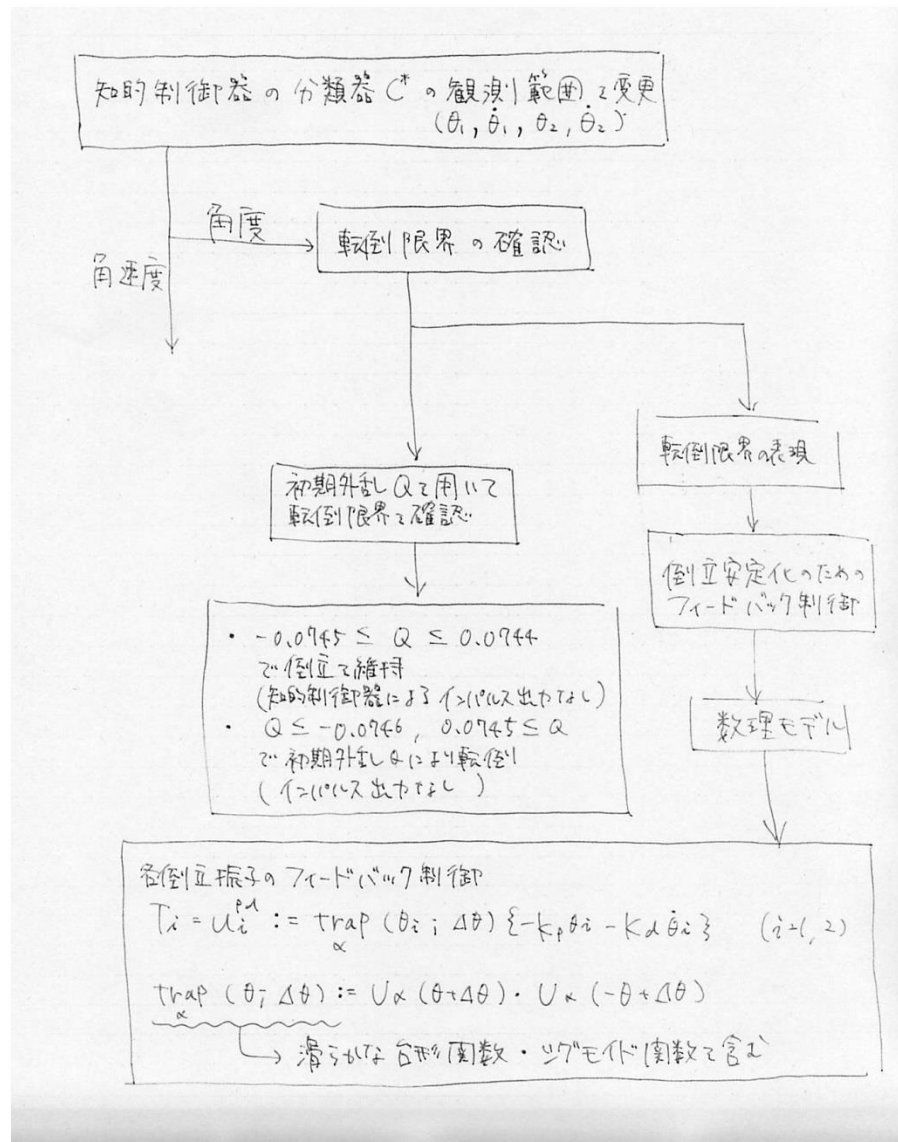 知的制御器の分類器 C* の観測範囲を変更
(θ₁, θ̇₁, θ₂, θ̇₂)
角度
転倒限界の確認
角速度
転倒限界の表現
初期外乱 Q を用いて
転倒限界を確認
倒立安定化のための
フィードバック制御
・ -0.0745 ≤ Q ≤ 0.0744
で倒立を維持
(知的制御器によるインパルス出力なし)
・ Q ≤ -0.0746, 0.0745 ≤ Q
で初期外乱Qにより転倒
(インパルス出力なし)
数理モデル
各倒立振子のフィードバック制御
Tᵢ = uᵢᵖᵈ := trap_α (θᵢ; Δθ) {-Kₚθᵢ - K_d θ̇ᵢ} (i=1, 2)
trap_α (θ; Δθ) := U_α (θ+Δθ) · U_α (-θ+Δθ)
滑らかな台形関数・シグモイド関数を含む